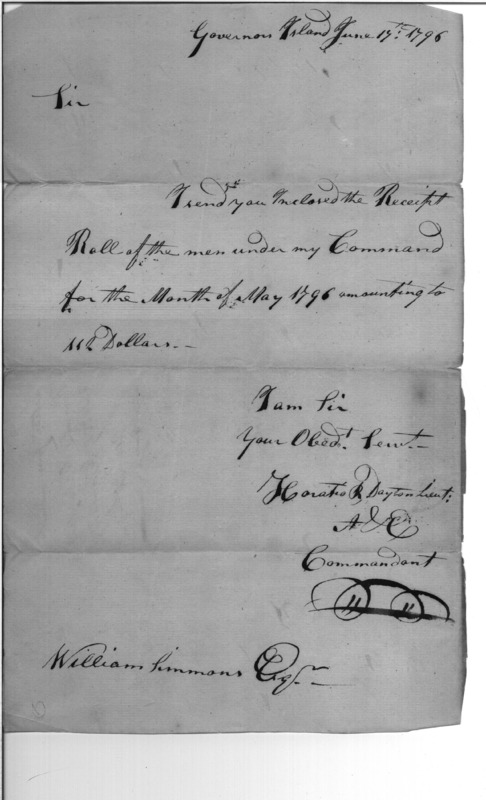 Governors Island June 17th. 1796
Sir
I send you Inclosed the Receipt
Roll of the men under my Command
for the Month of May 1796 amounting to
112 Dollars.—
I am Sir
Your Obedt. Servt.—
Horatio R Dayton Lieut:
A & E
Commandant
William Simmons Esqr.—